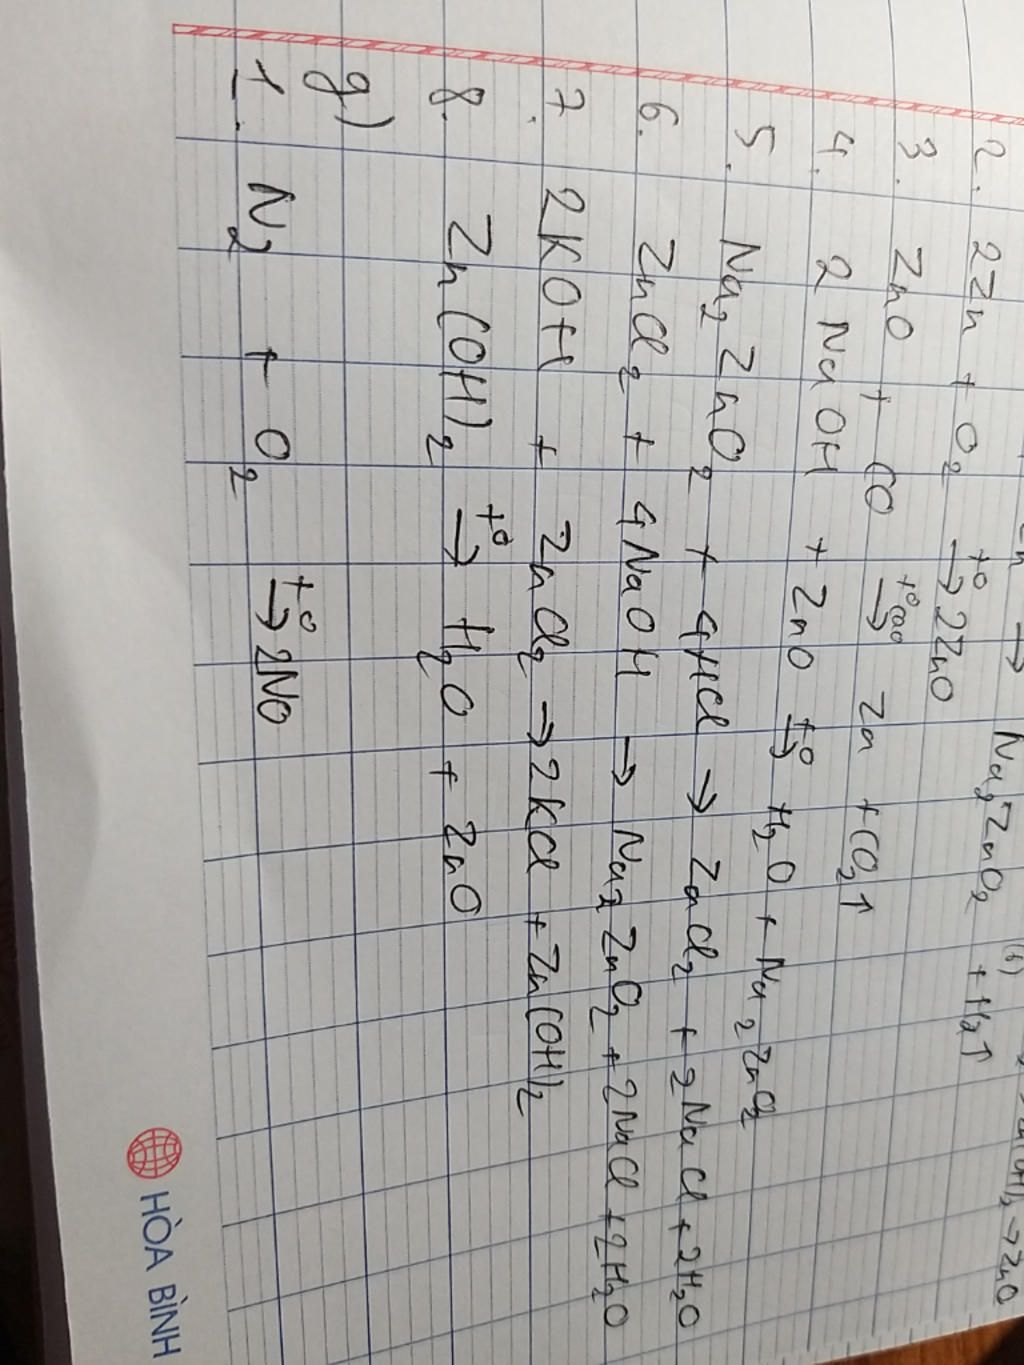 Na₂ZnO₂ + H₂↑
2. 2Zn + O₂ →(t°) 2ZnO
3. ZnO + CO →(t° cao) Zn + CO₂↑
4. 2NaOH + ZnO →(t°) H₂O + Na₂ZnO₂
5. Na₂ZnO₂ + 4HCl → ZnCl₂ + 2NaCl + 2H₂O
6. ZnCl₂ + 4NaOH → Na₂ZnO₂ + 2NaCl + 2H₂O
7. 2KOH + ZnCl₂ → 2KCl + Zn(OH)₂
8. Zn(OH)₂ →(t°) H₂O + ZnO
g)
1. N₂ + O₂ →(t°) 2NO
HÒA BÌNH